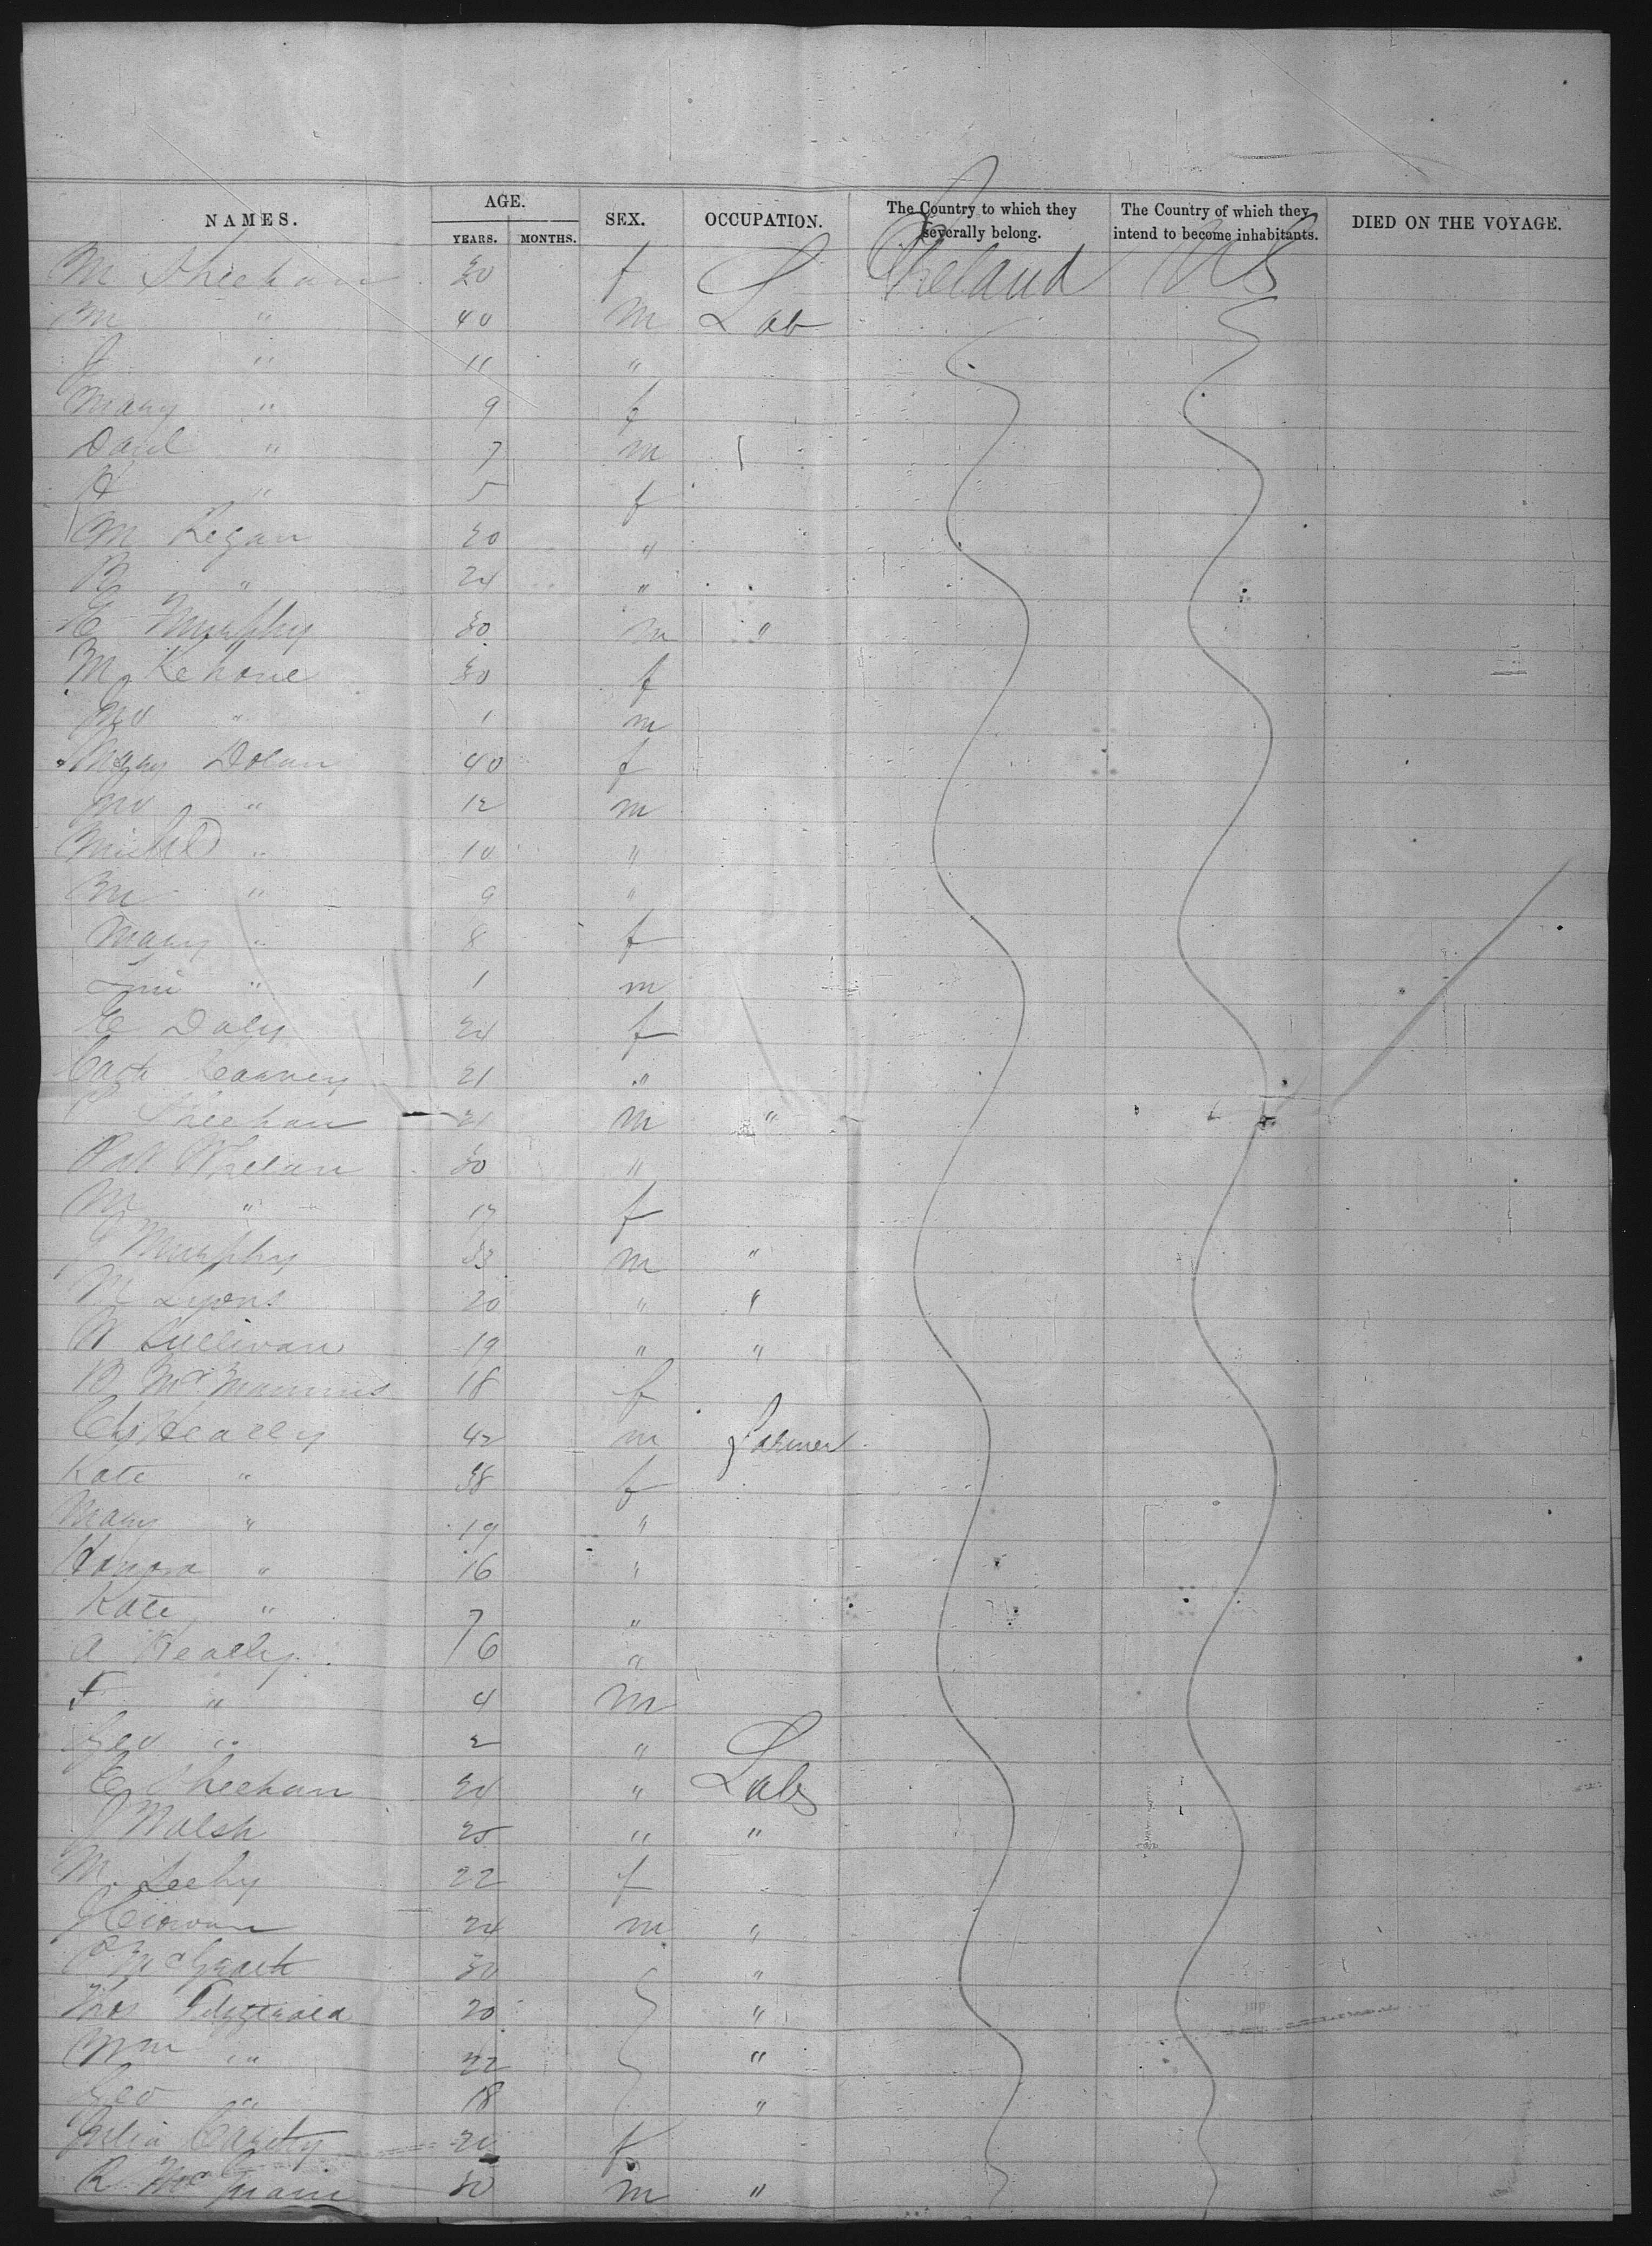 NAMES. AGE. SEX. OCCUPATION. The Country to which they severally belong. The Country of which they intend to become inhabitants. DIED ON THE VOYAGE.
YEARS. MONTHS.
M Sheehan 30 f Ireland US
M " 40 m Lab
J " 11 "
Mary " 9 f
Danl " 7 m
" 5 f
M Regan 20 "
B " 24 "
E Murphy 30 m "
M Kehoue 30 f
Jno " 1 m
Mary Dolan 40 f
Jno " 12 m
Michl " 10 "
M " 9 "
Mary " 8 f
Tim " 1 m
E Daly 24 f
Cath Kearney 21 "
P Sheehan 21 m "
Pat Whelan 30 "
M " 17 f
J Murphy 33 m "
M Lyons 20 " "
N Sullivan 19 " "
B McMannus 18 f
Chs Healey 42 m Farmer
Kate " 38 f
Mary " 19 "
Honora " 16 "
Kate " 7 "
A Healey 6 "
F " 4 m
Geo " 2 "
E Sheehan 24 " Lab
J Walsh 25 " "
M Leehy 22 f
J Kirwan 24 m "
P McGrath 30 "
Thos Fitzgerald 20 "
Wm " 22 "
Geo " 18 "
Julia Carthy 20 f
R 30 m "